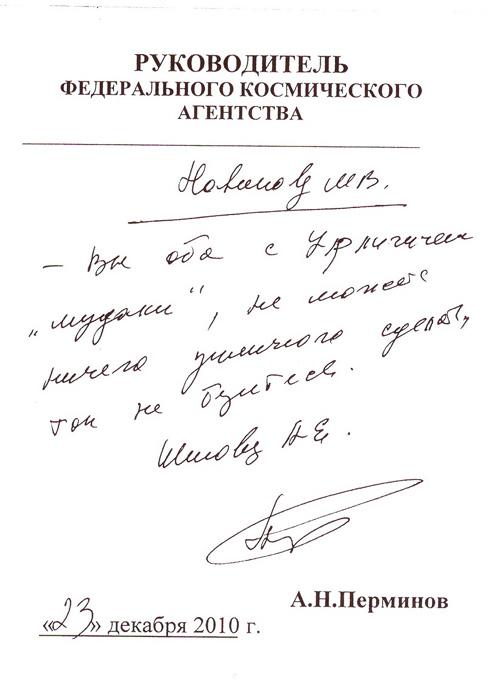 РУКОВОДИТЕЛЬ
ФЕДЕРАЛЬНОГО КОСМИЧЕСКОГО
АГЕНТСТВА
М.В.
- Вы оба с Урличичем
„мудаки“, не можете
ничего умного сделать,
так не
Шилову А.Е.
А.Н.Перминов
«23» декабря 2010 г.